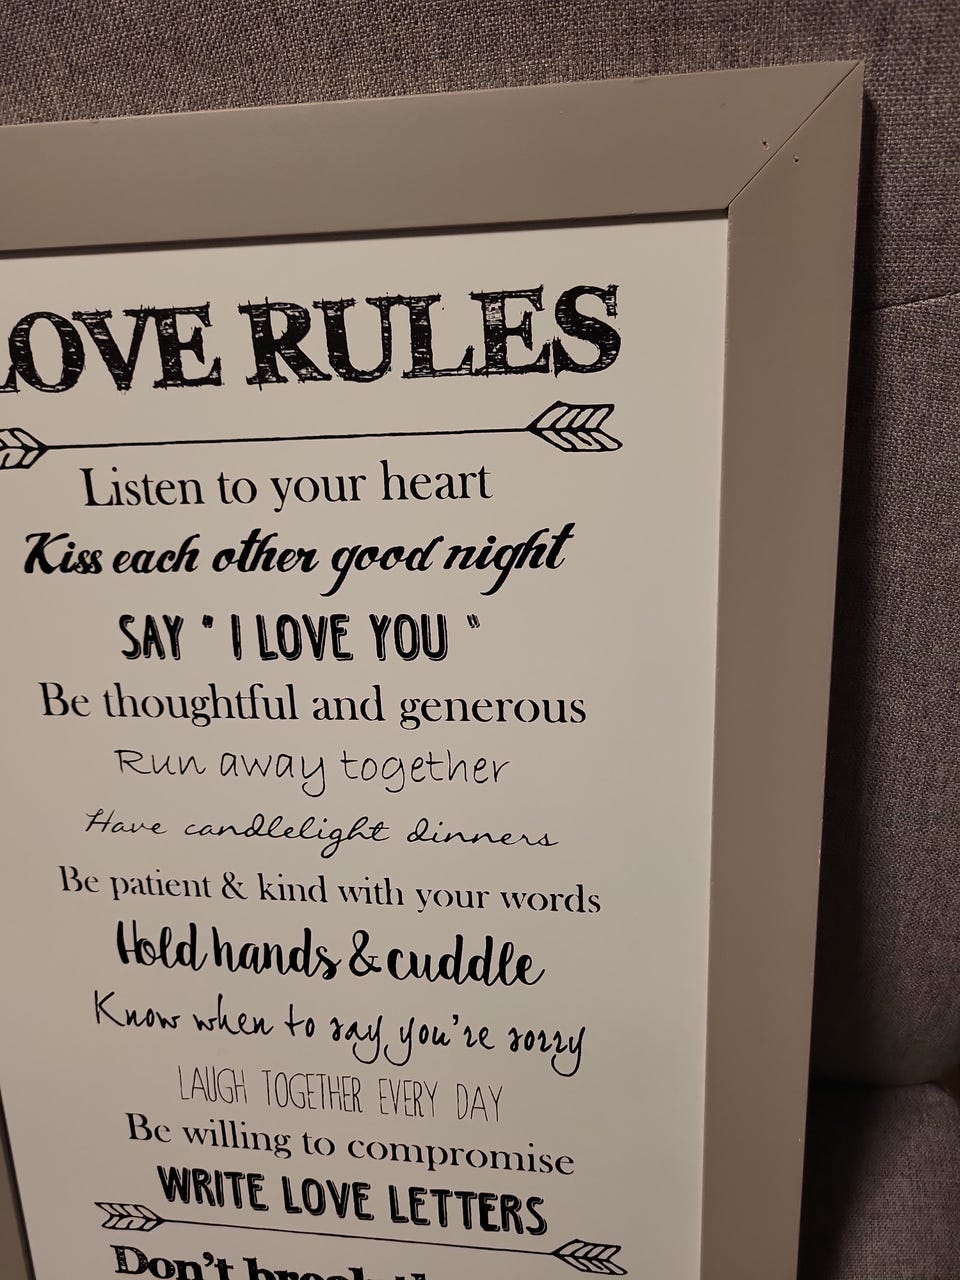 LOVE RULES
Listen to your heart
Kiss each other good night
SAY " I LOVE YOU "
Be thoughtful and generous
Run away together
Have candlelight dinners
Be patient & kind with your words
Hold hands & cuddle
Know when to say you're sorry
LAUGH TOGETHER EVERY DAY
Be willing to compromise
WRITE LOVE LETTERS
Don't break